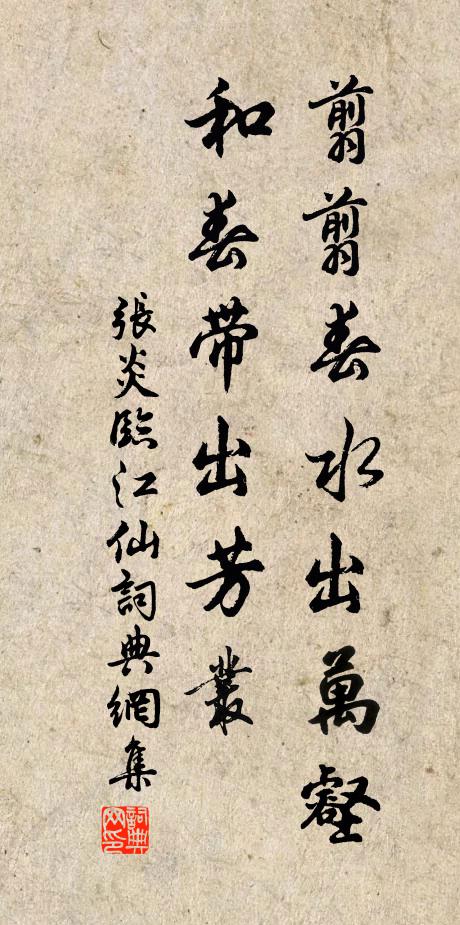 翦翦春水出萬壑
和春帶出芳叢
張炎臨江仙詞典網集
詞典网印